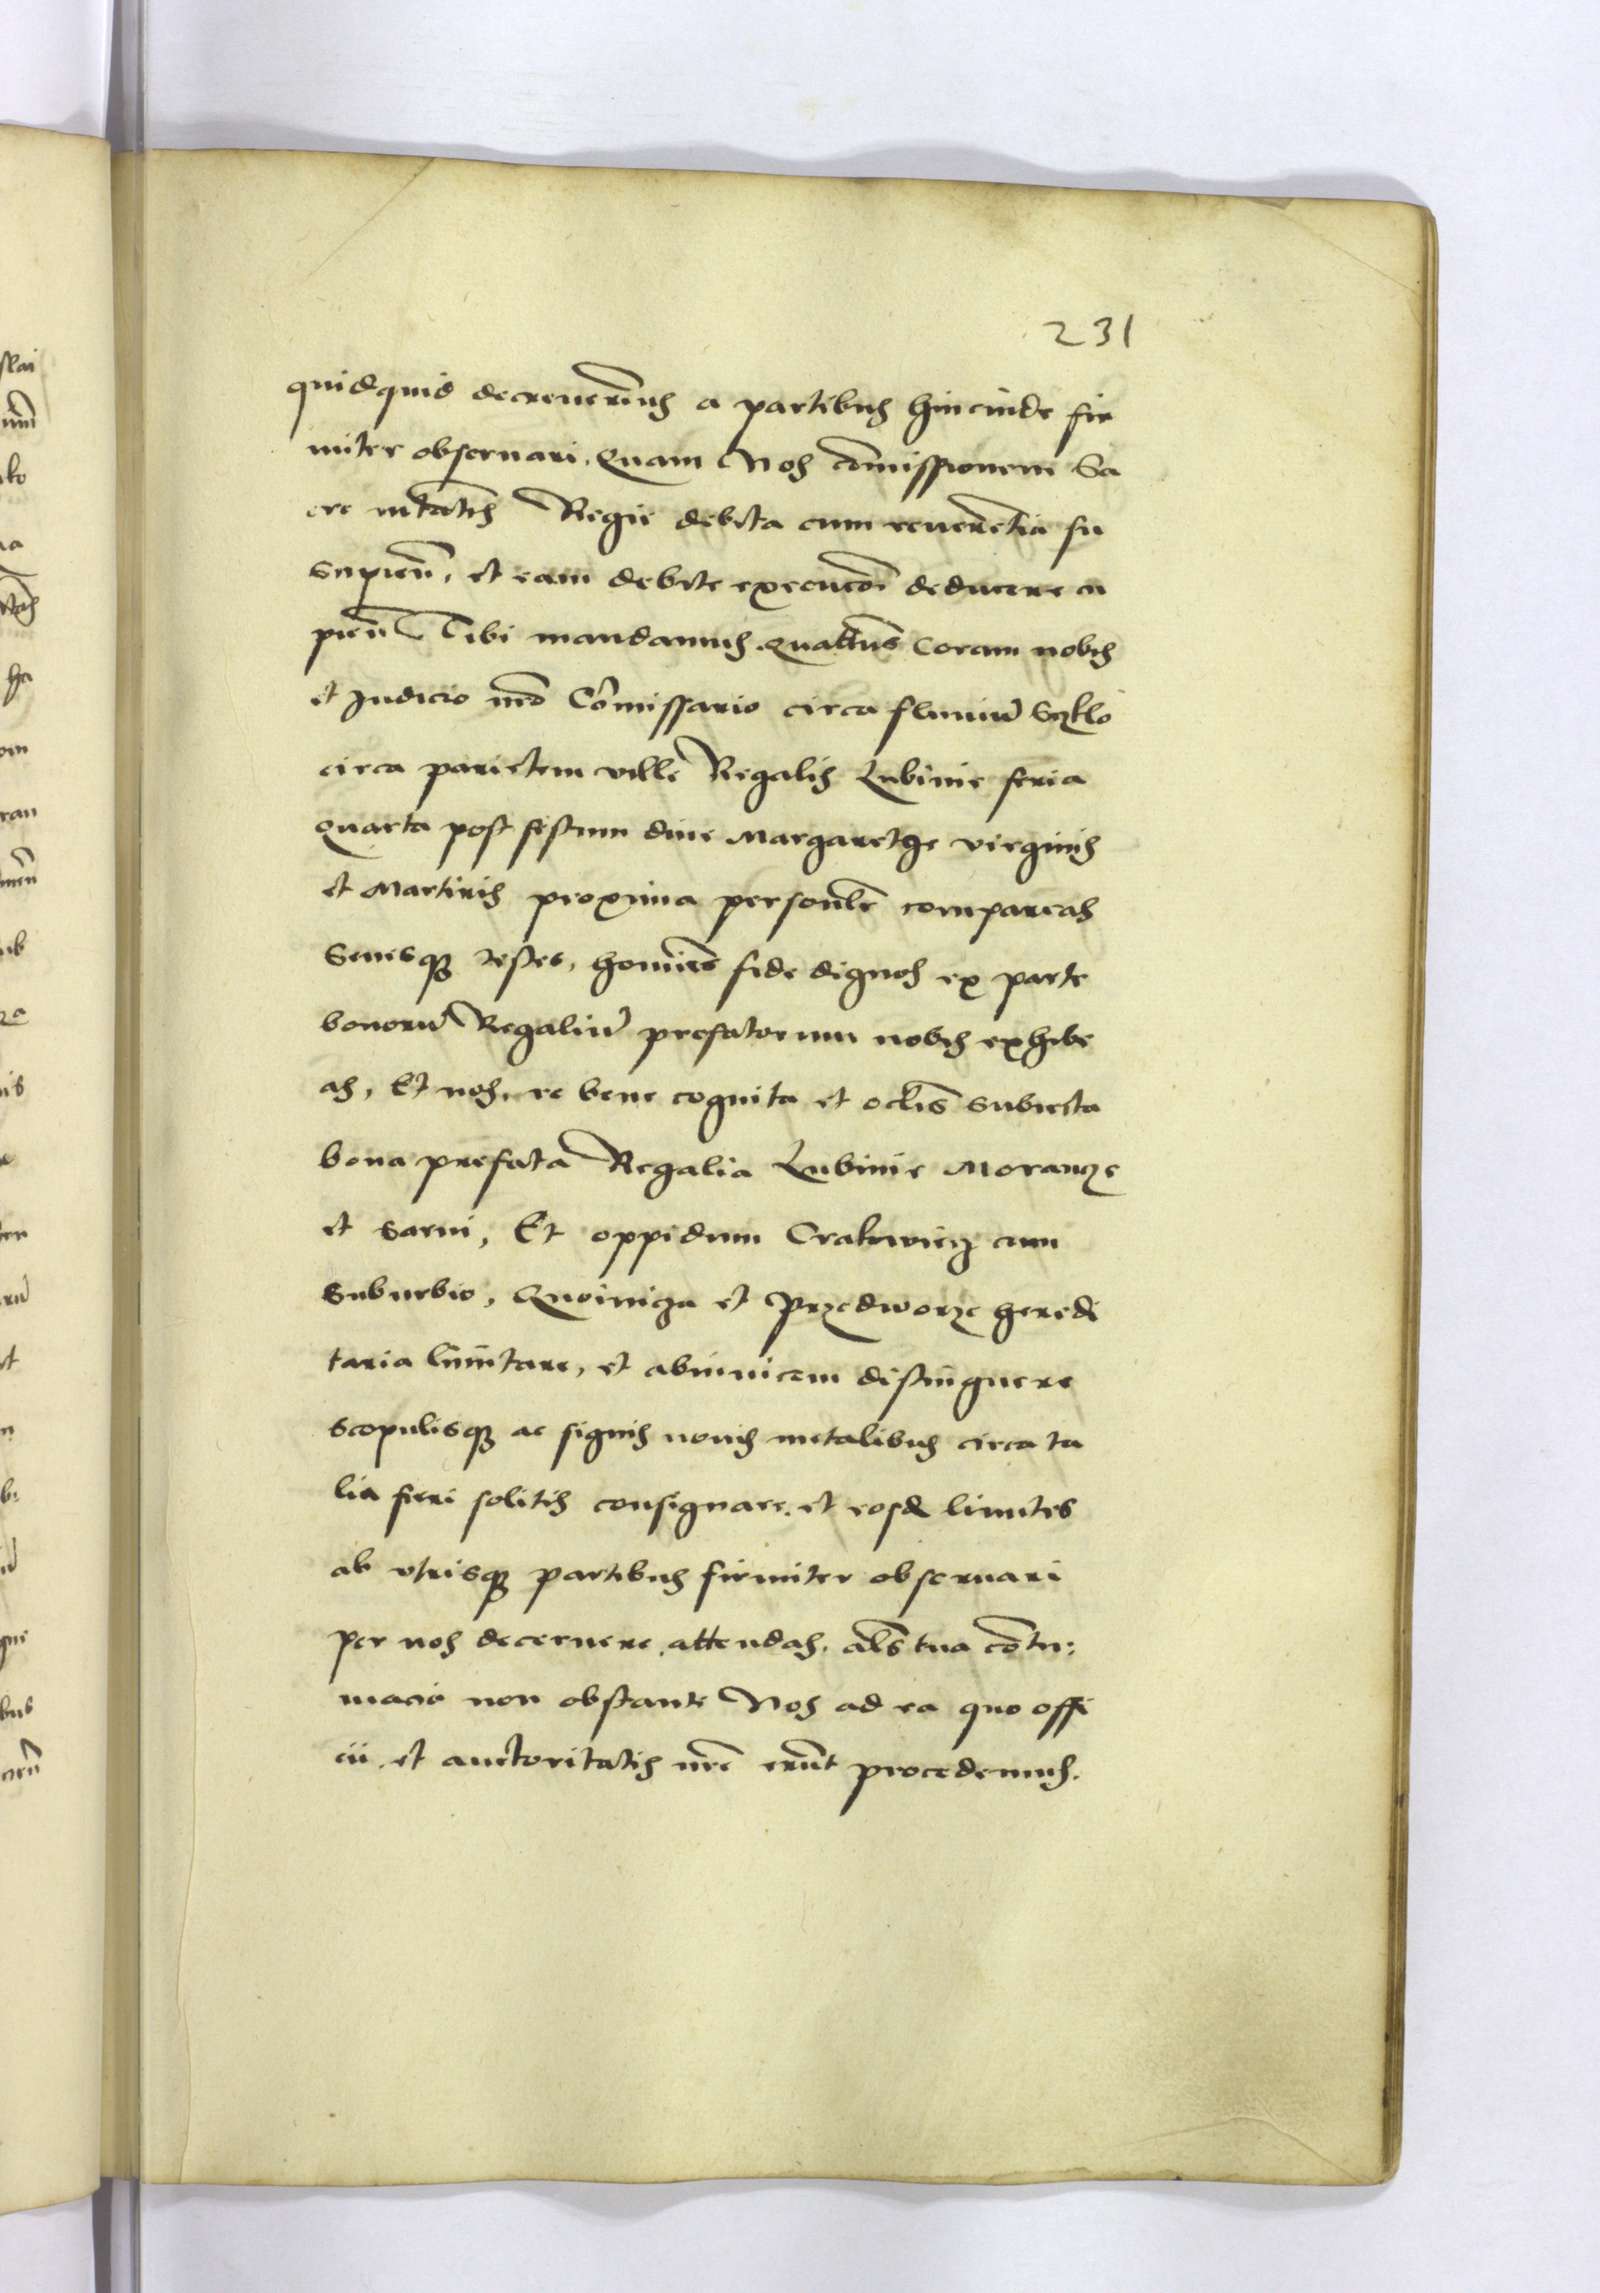 231
quidquid decreuerimus a partibus hincinde fir
miter obseruari. Quam Nos Com̄issionem Sa
cre mtatis Regie debita cum reuerētia su
scipien̄, et eam debite execucōi deducere cu
pien̄ Tibi mandamus. quaten̄s Coram nobis
et Iudicio nr̄o Cōmissario circa fluuiū Szklo
circa parietem villē Regalis Lubinie feria
quarta post festum diue Margarethe virginis
et Martiris proxima personlr̄ compareas
Senesqʒ testes, homīes fide dignos ex parte
bonorū Regaliū prefatorum nobis exhibe
as, Et nos, re bene cognita et oclīs subiecta
bona prefata Regalia Lubinie Morancze
et Sarni, Et oppidum Crakowiecz cum
Suburbio, Gnoinicza et Przedworze heredi
taria lim̄itare, et abinuicem distinguere
scopulisqʒ ac signis nouis metalibus circa ta
lia fieri solitis consignare. et eosd limites
ab vtrisqʒ partibus firmiter obseruari
per nos decernere. attendas. als̄ tua cōtu:
macia non obstante Nos ad ea que offi
cii. et auctoritatis nr̄e erūt procedemus.